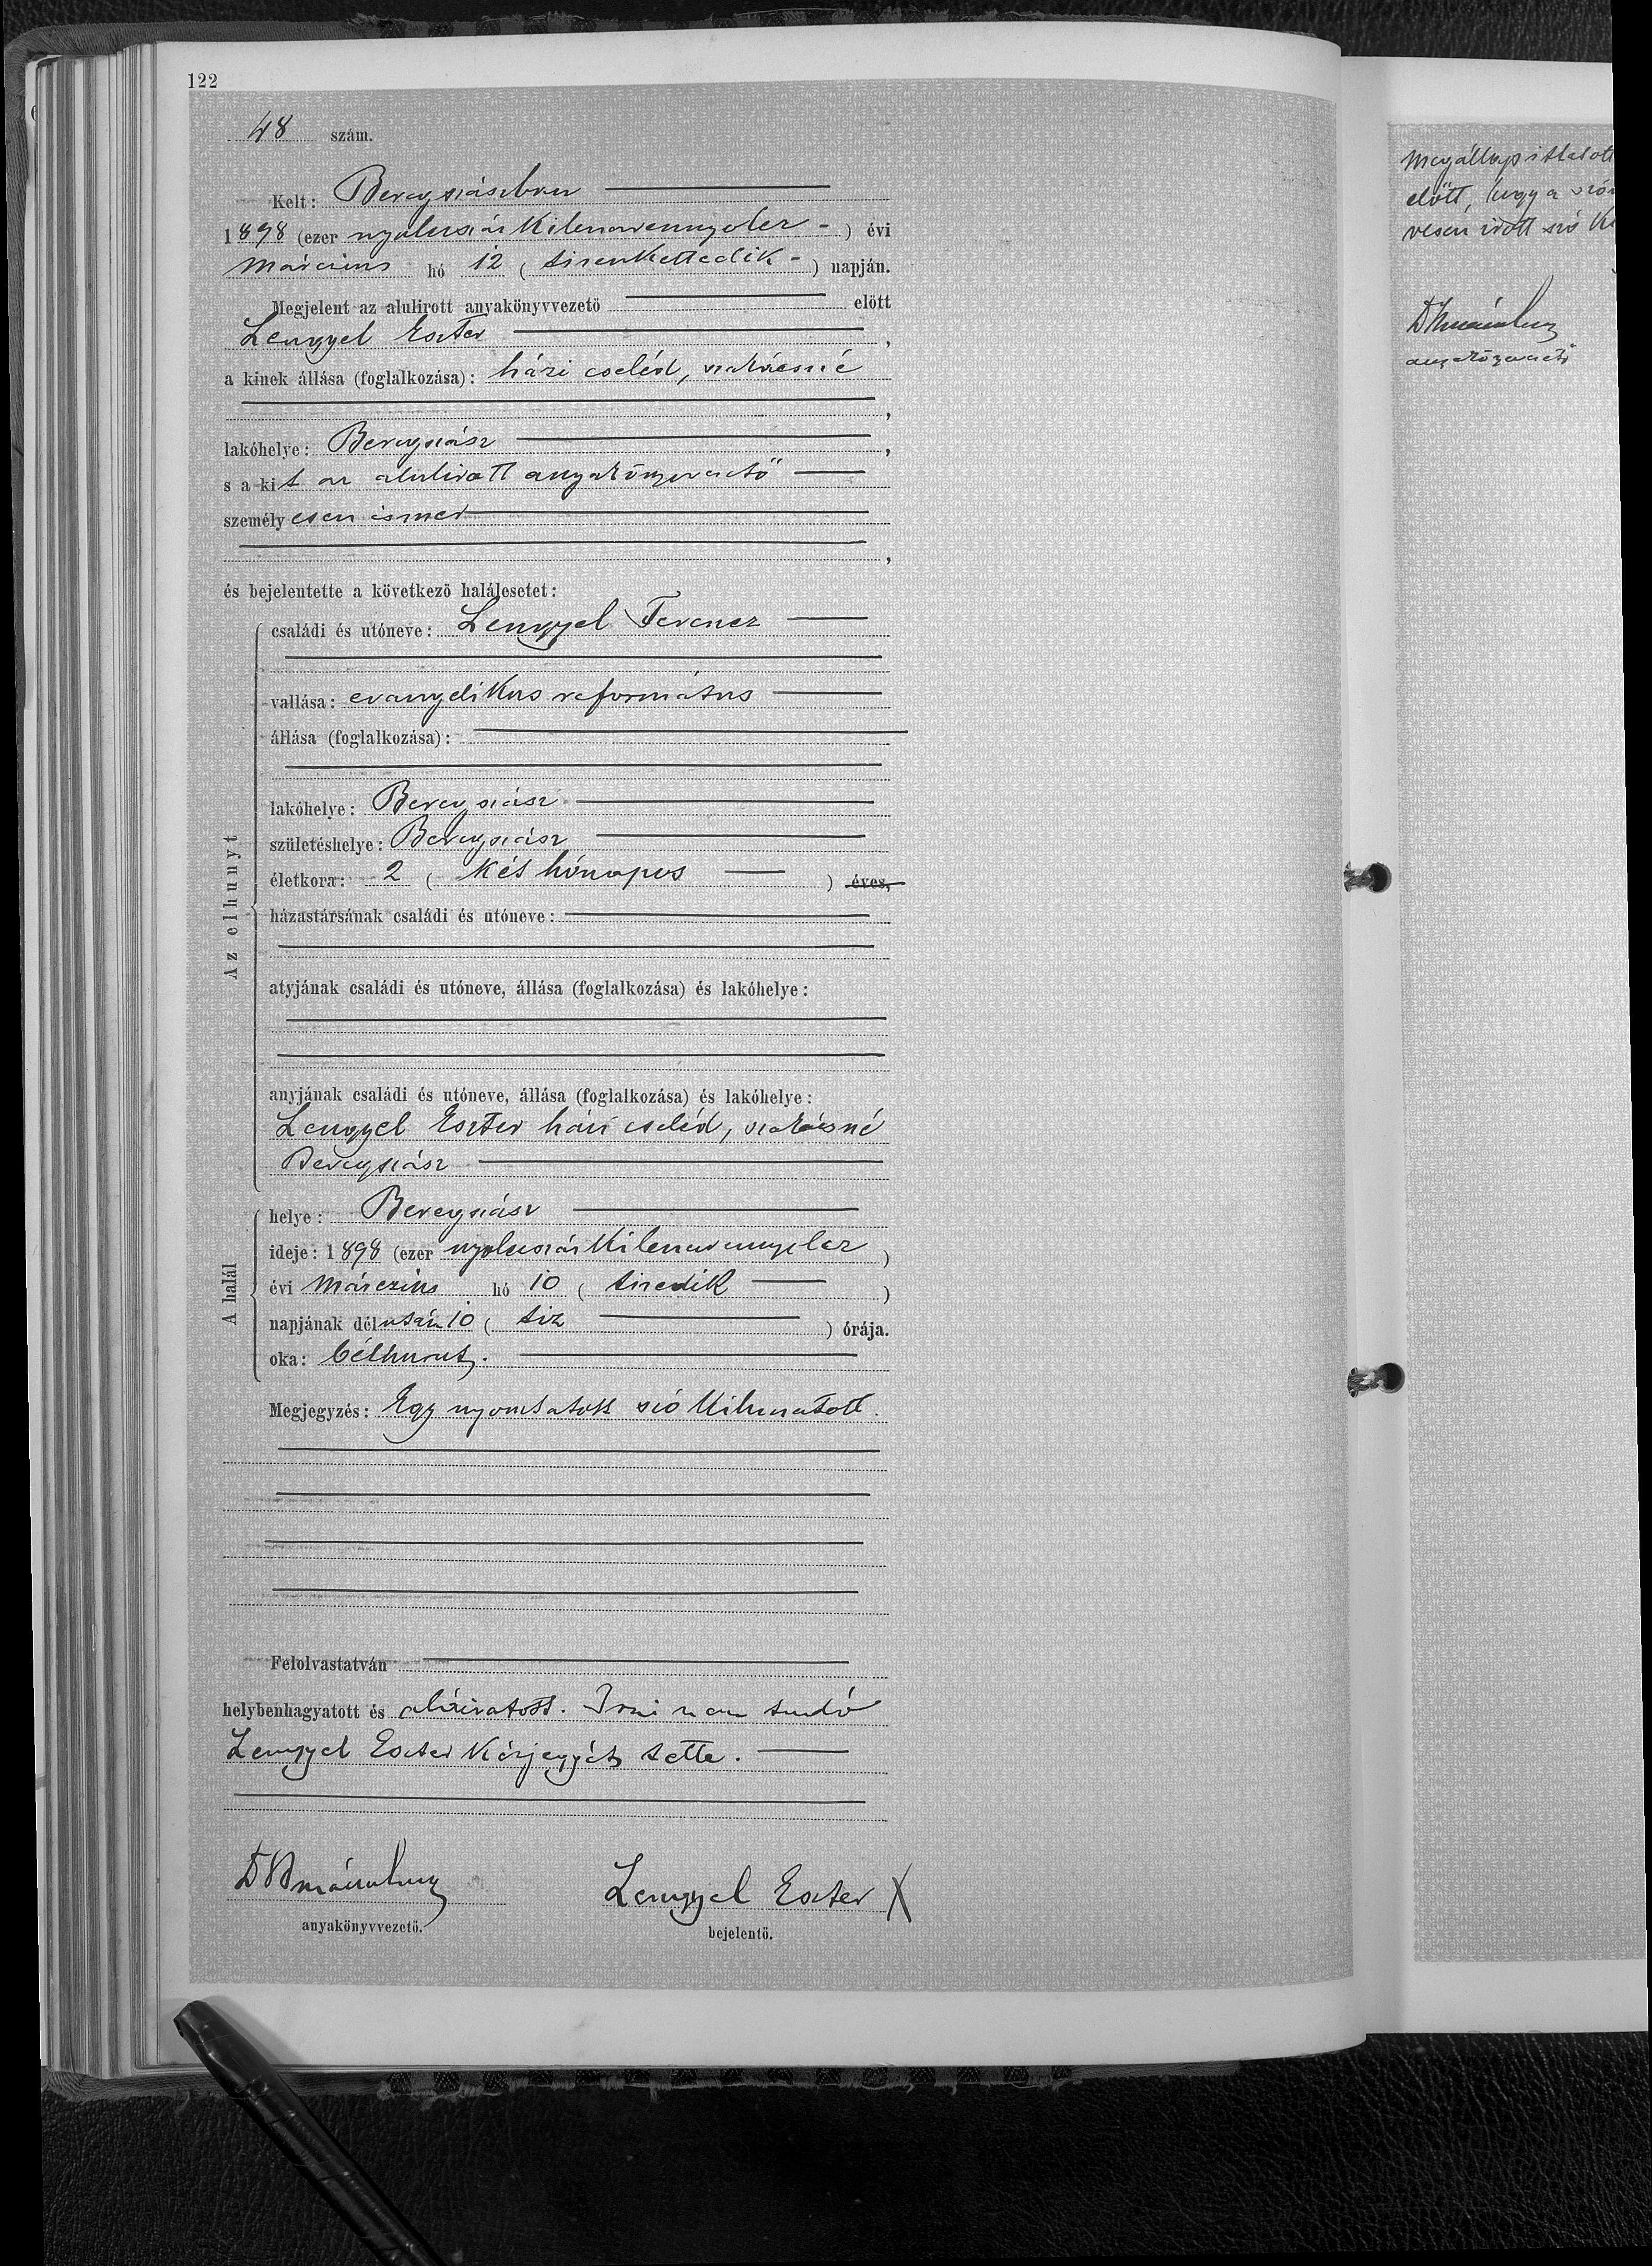 122
48 szám.
Kelt: Beregszászban
1898 (ezer nyolcszáz kilencvennyolcz - ) évi
márczius hó 12 ( tizenkettedik - ) napján.
Megjelent az alulirott anyakönyvvezető előtt
Lengyel Eszter ,
a kinek állása (foglalkozása): házi cseléd, szakácsné
,
lakóhelye: Beregszász ,
s a kit az alulirott anyakönyvvezető
személyesen ismer
,
és bejelentette a következő halálesetet:
Az elhunyt
családi és utóneve: Lengyel Ferencz
vallása: evangelikus református
állása (foglalkozása):
lakóhelye: Beregszász
születéshelye: Beregszász
életkora: 2 ( két hónapos ) éves,
házastársának családi és utóneve:
atyjának családi és utóneve, állása (foglalkozása) és lakóhelye:
anyjának családi és utóneve, állása (foglalkozása) és lakóhelye:
Lengyel Eszter házi cseléd, szakácsné
Beregszász
A halál
helye: Beregszász
ideje: 1898 (ezer nyolcszáz kilencvennyolcz )
évi márczius hó 10 ( tizedik )
napjának délután 10 ( tiz ) órája.
oka: bélhurut.
Megjegyzés: Egy nyomtatott szó kihuzatott.
Felolvastatván
helybenhagyatott és aláiratott. Irni nem tudó
Lengyel Eszter kézjegyét tette.
anyakönyvvezető.
Lengyel Eszter X
bejelentő.
Megállapittatott
előtt, hogy a
irott szó
anyakönyvvezető